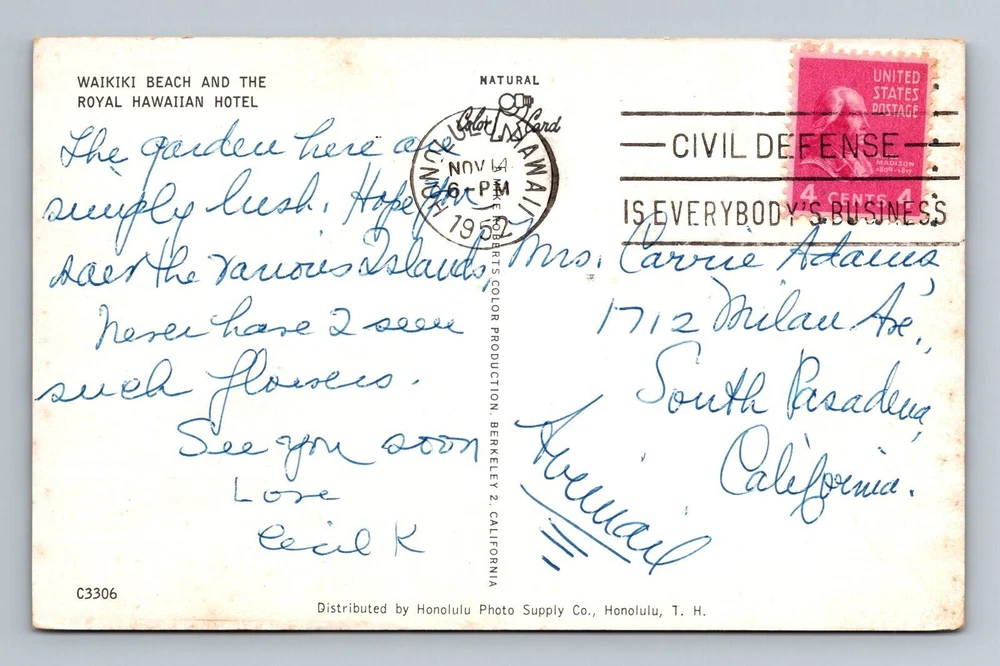 WAIKIKI BEACH AND THE
ROYAL HAWAIIAN HOTEL
NATURAL
Color Card
HONOLULU HAWAII
NOV 14
6-PM
1952
CIVIL DEFENSE
IS EVERYBODY'S BUSINESS
UNITED
STATES
POSTAGE
MADISON
1809-1817
4 CENTS 4
The garden here are
simply lush. Hope you
saw the various Islands,
Never have I seen
such flowers.
See you soon
Love
Cecil K
MIKE ROBERTS COLOR PRODUCTION, BERKELEY 2, CALIFORNIA
Mrs. Carrie Adams,
1712 Milan Ave.,
South Pasadena,
California.
Avemail
C3306
Distributed by Honolulu Photo Supply Co., Honolulu, T. H.